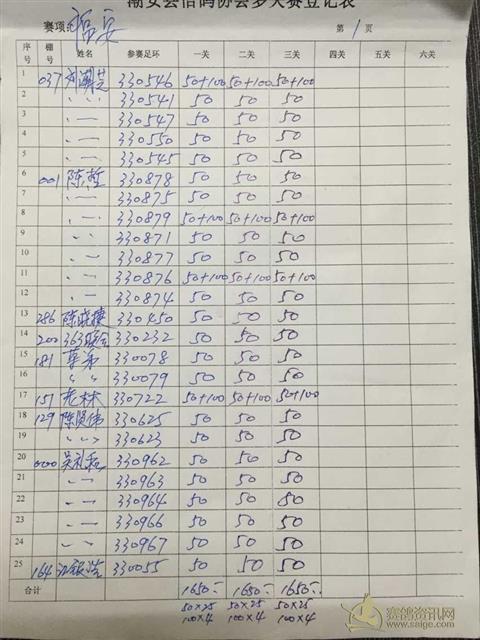 潮安会信鸽协会多关赛登记表
赛项: 福安 第 1 页
序号 棚号 姓名 参赛足环 一关 二关 三关 四关 五关 六关
1 037 330546 50+100 50+100 50+100
2 〃 330541 50 50 50
3 〃 330547 50 50 50
4 〃 330550 50 50 50
5 〃 330545 50 50 50
6 001 陈哲 330878 50 50 50
7 〃 330875 50 50 50
8 〃 330879 50+100 50+100 50+100
9 〃 330871 50 50 50
10 〃 330877 50 50 50
11 〃 330876 50+100 50+100 50+100
12 〃 330874 50 50 50
13 286 陈晓捷 330450 50 50 50
14 200 363 330232 50 50 50
15 181 330078 50 50 50
16 〃 〃 330079 50 50 50
17 151 老林 330722 50+100 50+100 50+100
18 129 陈贤伟 330625 50 50 50
19 〃 330623 50 50 50
20 000 吴礼和 330962 50 50 50
21 〃 330963 50 50 50
22 〃 330964 50 50 50
23 〃 330966 50 50 50
24 〃 330967 50 50 50
25 164 330055 50 50 50
合计 1650- 1650- 1650-
50×25 50×25 50×25
100×4 100×4 100×4
赛鸽资讯网
www.saige.com